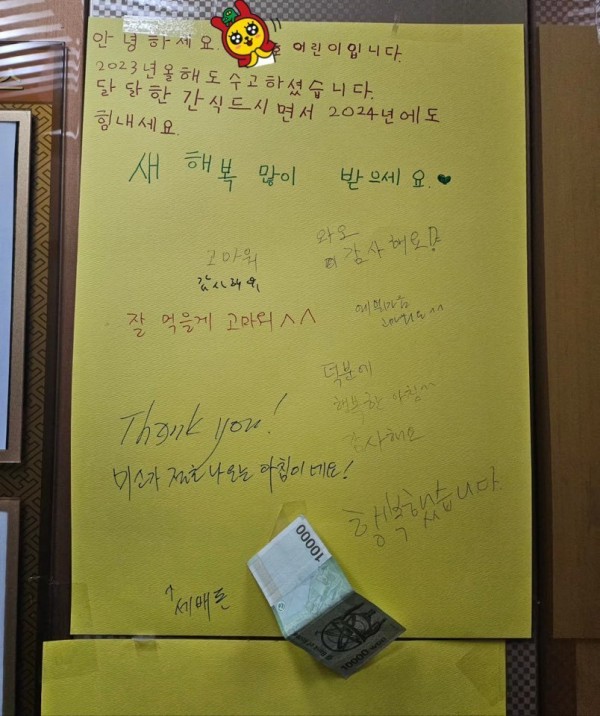 안녕하세요. 어린이입니다.
2023년 올해도 수고하셨습니다.
달달한 간식드시면서 2024년에도
힘내세요.
새해복 많이 받으세요.♥
와우
감사해요!
고마워
잘 먹을게 고마워^^
덕분에
행복한 아침^^
감사해요
Thank you!
미소가 절로 나오는 아침이네요!
행복했습니다.
↑세배돈
10000
10000